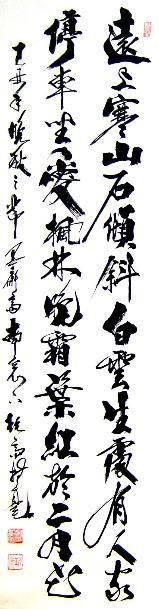 遠上寒山石傾斜白雲生處有人家
停車坐愛楓林晚霜葉紅於二月花
丁丑年